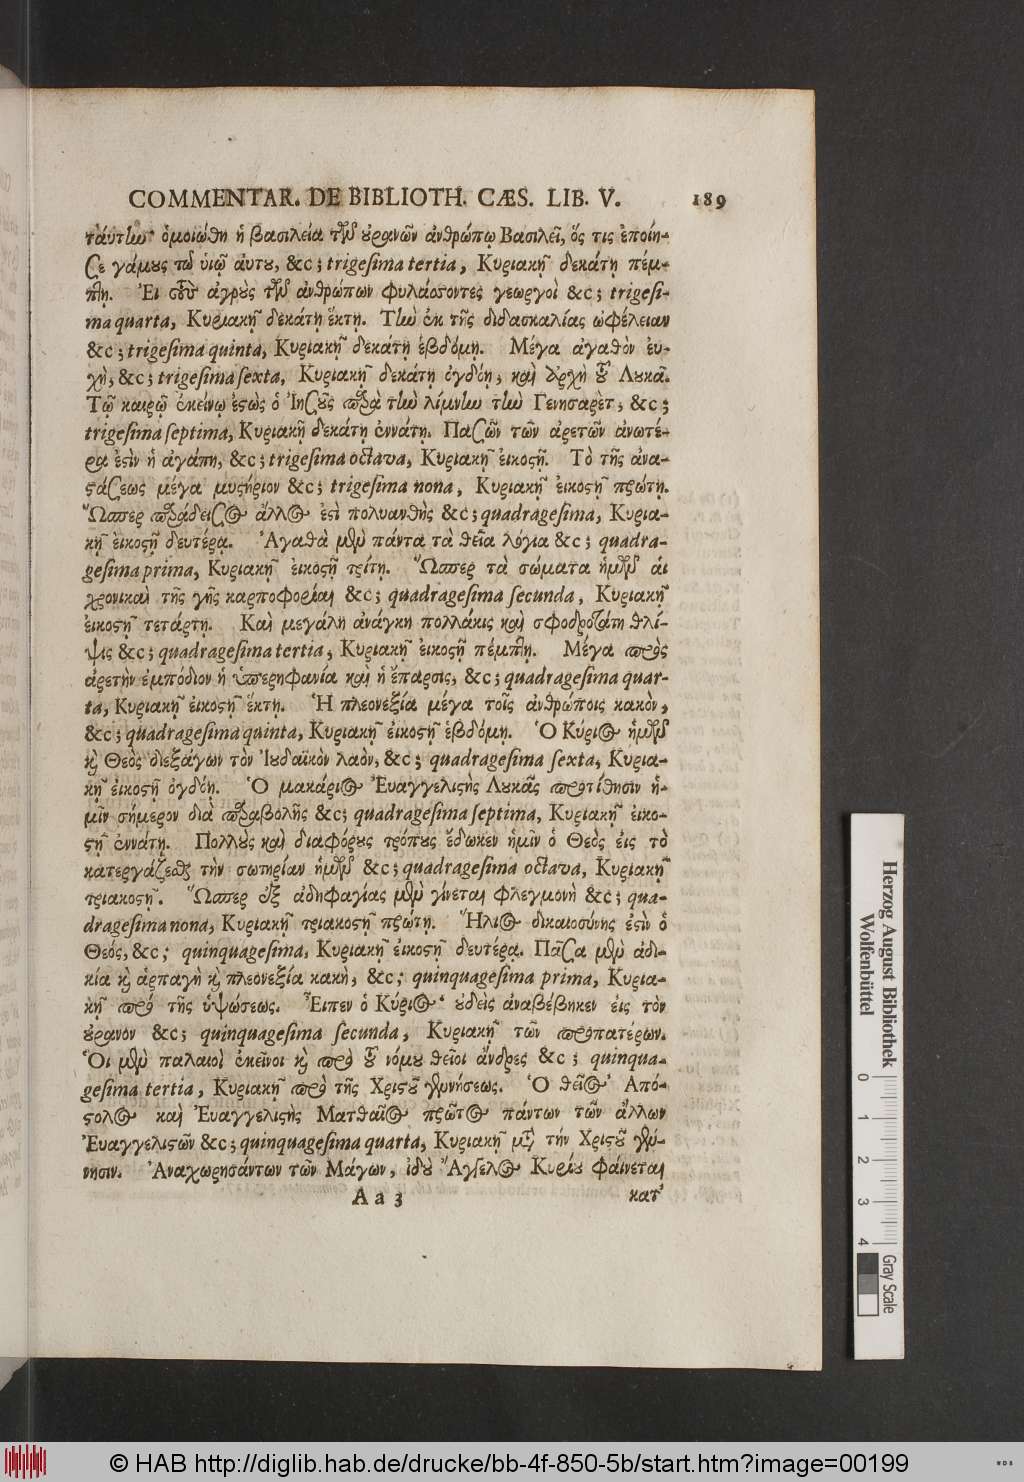 COMMENTAR. DE BIBLIOTH. CÆS. LIB. V. 189
ταύτην· ὁμοιώθη ἡ βασιλεία τῶν οὐρανῶν ἀνθρώπῳ Βασιλεῖ, ὅς τις ἐποίη-
σε γάμους τῷ ὑιῷ ἀυτου, &c; trigesima tertia, Κυριακῇ δεκάτη πέμ-
πτη. Ἐι τοὺς ἀγροὺς τῶν ἀνθρώπων φυλάσσοντες γεωργοὶ &c; trigesi-
ma quarta, Κυριακῇ δεκάτη ἕκτη. Τὴν ἐκ τῆς διδασκαλίας ὠφέλειαν
&c; trigesima quinta, Κυριακῇ δεκάτη ἑβδόμη. Μέγα ἀγαθὸν ἐυ-
χὴ, &c; trigesima sexta, Κυριακῇ δεκάτη ὀγδόη, καὶ ἀρχὴ τοῦ Λουκᾶ.
Τῷ καιρῷ ἐκείνῳ ἑστὼς ὁ Ἰησοῦς παρὰ τὴν λίμνην τὴν Γενησαρὲτ, &c;
trigesima septima, Κυριακῇ δεκάτη ἐννάτη. Πασῶν τῶν ἀρετῶν ἀνωτέ-
ρα ἐστὶν ἡ ἀγάπη, &c; trigesima octava, Κυριακῇ ἐικοστῇ. Τὸ τῆς ἀνα-
στάσεως μέγα μυστήριον &c; trigesima nona, Κυριακῇ ἐικοστῇ πρώτη.
Ὥσπερ παράδεισος ἄλλος ἐστὶ πολυανθὴς &c; quadragesima, Κυρια-
κῇ ἐικοστῇ δευτέρᾳ. Ἀγαθὰ μὲν πάντα τὰ θεῖα λόγια &c; quadra-
gesima prima, Κυριακῇ ἐικοστῇ τρίτη. Ὥσπερ τὰ σώματα ἡμῶν ἁι
χρονικαὶ τῆς γῆς καρποφορίαι &c; quadragesima secunda, Κυριακῇ
ἐικοστῇ τετάρτη. Καὶ μεγάλη ἀνάγκη πολλάκις καὶ σφοδροτάτη θλί-
ψις &c; quadragesima tertia, Κυριακῇ ἐικοστῇ πέμπτη. Μέγα πρὸς
ἀρετὴν ἐμπόδιον ἡ ὑπερηφανία καὶ ἡ ἔπαρσις, &c; quadragesima quar-
ta, Κυριακῇ ἐικοστῇ ἕκτη. Ἡ πλεονεξία μέγα τοῖς ἀνθρώποις κακὸν,
&c; quadragesima quinta, Κυριακῇ ἐικοστῇ ἑβδόμη. Ὁ Κύριος ἡμῶν
καὶ Θεὸς διεξάγων τὸν Ἰουδαϊκὸν λαὸν, &c; quadragesima sexta, Κυρια-
κῇ ἐικοστῇ ὀγδόη. Ὁ μακάριος Ἐυαγγελιστὴς Λουκᾶς προτίθησιν ἡ-
μῖν σήμερον διὰ παραβολῆς &c; quadragesima septima, Κυριακῇ ἐικο-
στῇ ἐννάτη. Πολλοὺς καὶ διαφόρους τρόπους ἔδωκεν ἡμῖν ὁ Θεὸς ἐις τὸ
κατεργάζεσθαι τὴν σωτηρίαν ἡμῶν &c; quadragesima octava, Κυριακῇ
τριακοστῇ. Ὥσπερ ἐξ ἀδηφαγίας μὲν γίνεται φλεγμονὴ &c; qua-
dragesima nona, Κυριακῇ τριακοστῇ πρώτη. Ἥλιος δικαιοσύνης ἐστὶν ὁ
Θεός, &c; quinquagesima, Κυριακῇ ἐικοστῇ δευτέρᾳ. Πᾶσα μὲν ἀδι-
κία καὶ ἁρπαγὴ καὶ πλεονεξία κακὴ, &c; quinquagesima prima, Κυρια-
κῇ πρό τῆς ὑψώσεως. Ἔιπεν ὁ Κύριος· οὐδεὶς ἀναβέβηκεν ἐις τὸν
οὐρανὸν &c; quinquagesima secunda, Κυριακῇ τῶν προπατέρων.
Ὁι μὲν παλαιοὶ ἐκεῖνοι καὶ πρὸ τοῦ νόμου θεῖοι ἄνδρες &c; quinqua-
gesima tertia, Κυριακῇ πρὸ τῆς Χριστοῦ γεννήσεως. Ὁ θεῖος Ἀπό-
στολος καὶ Ἐυαγγελιστὴς Ματθαῖος πρῶτος πάντων τῶν ἄλλων
Ἐυαγγελιστῶν &c; quinquagesima quarta, Κυριακῇ μετὰ τήν Χριστοῦ γέν-
νησιν. Ἀναχωρησάντων τῶν Μάγων, ἰδοὺ Ἄγγελος Κυρίου φαίνεται
Aa 3 κατ'
Herzog August Bibliothek
Wolfenbüttel
0 1 2 3 4
Gray Scale
© HAB http://diglib.hab.de/drucke/bb-4f-850-5b/start.htm?image=00199